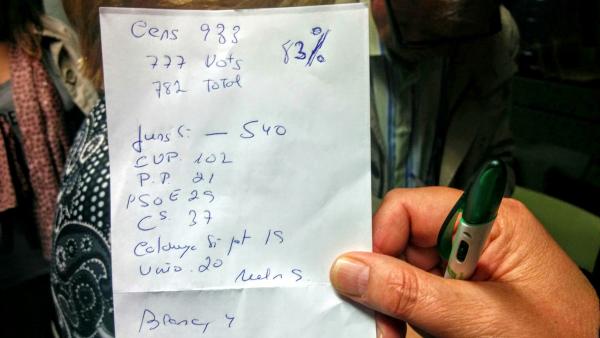 Cens 933
777 Vots 83%
782 Total
Junts Si — 540
CUP. 102
P.P. 21
PSOE 29
Cs. 37
Si pt 19
Unio. 20
Nuls 5.
Blancs 4